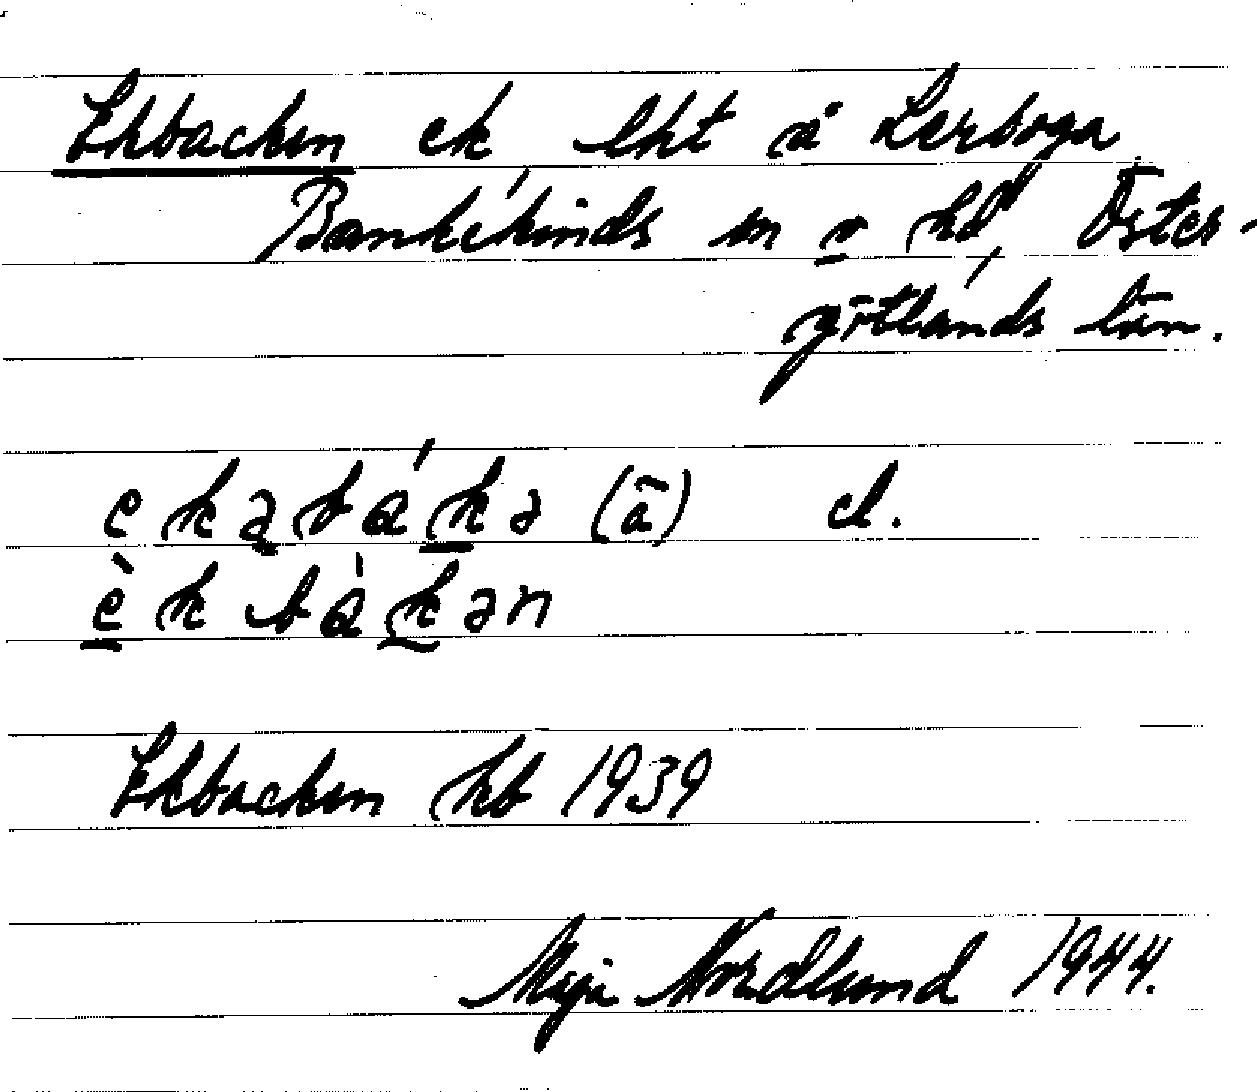 Ekbacken ek, lht å Lerboga
Bankekinds sn o hd, Öster-
götlands län.
ekəbákə (ā) el.
èkbàkən
Ekbacken kb 1939
Maja Nordlund 1944.